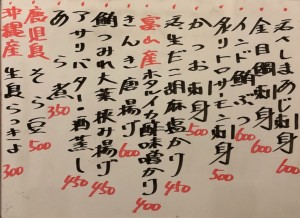 活〆しまあじ刺身 600
金目鯛刺身 600
インド鮪ぶつ 600
タスマニアトロサーモン刺身 500
かつお刺身 500
活生だこ胡麻塩かり 450
富山産ホタルイカ酢味噌かけ 400
きんき唐揚げ 600
鮪つみれ大葉挟み揚げ 450
アサリバター酒蒸し 450
あら煮 350
鹿児島 そら豆 500
沖縄産 生島らっきょ 300